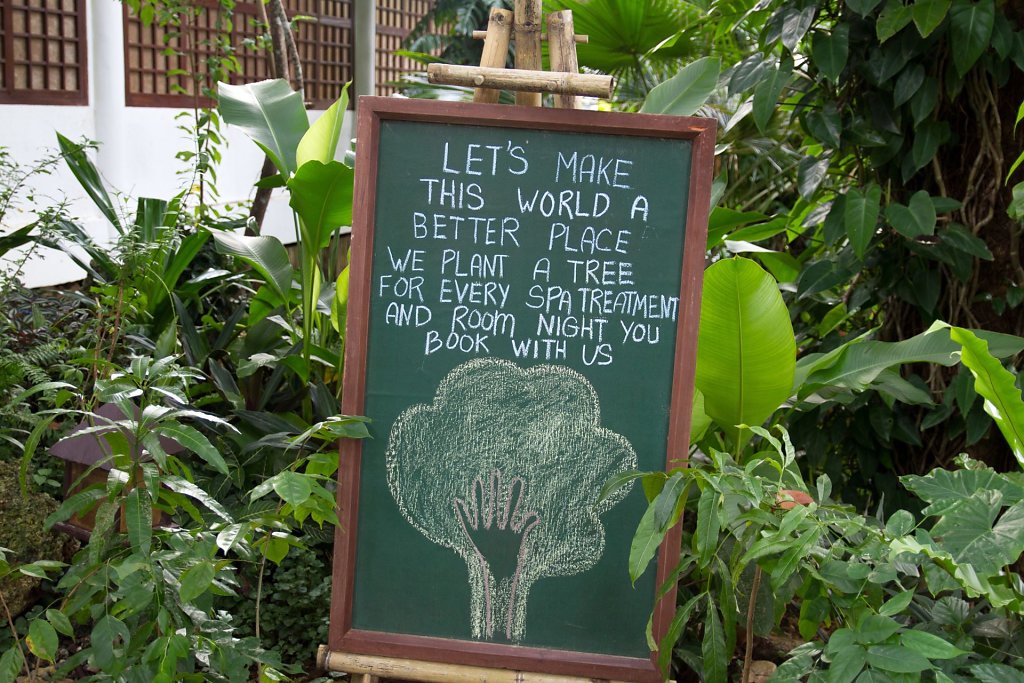 LET'S MAKE
THIS WORLD A
BETTER PLACE
WE PLANT A TREE
FOR EVERY SPA TREATMENT
AND ROOM NIGHT YOU
BOOK WITH US